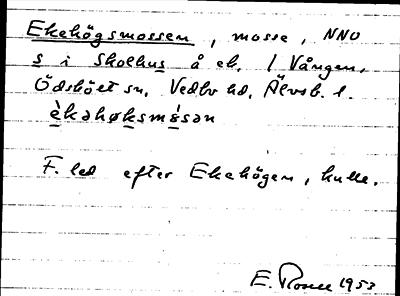 Ekehögsmossen, mosse, NNO
s i Skolhus å ek. 1 Vången,
Ödskölt sn, Vedbo hd, Älvsb. l.
èkəhøksmósən
F. led efter Ekehögen, kulle.
E. 1953